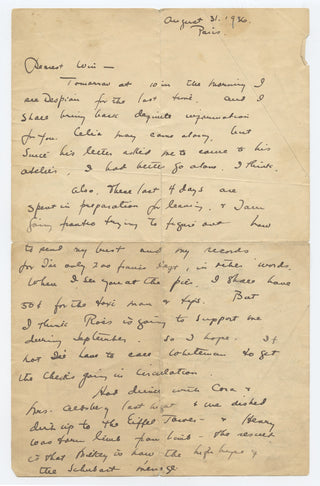 August 31. 1926.
Paris.
Dearest Win —
Tomorrow at 10 in the morning I
see Despiau for the last time. and I
shall bring back definite information
for you. Celia may come along, but
since his letter asked me to come to his
atelier, I had better go alone, I think.
Also, these last 4 days are
spent in preparation for leaving, & I am
going frantic trying to figure out how
to send my bust and my records
for I've only 200 francs left, in other words.
When I see you at the pier. I shall have
50¢ for the taxi man & tips. But
I think Rois is going to support me
during September. so I hope. If
not I'll have to call Whiteman to get
the checks going in circulation.
Had dinner with Cora &
Mrs. last night & we dished
dirt up to the Eiffel Tower - & Henry
was torn limb from limb - the result
is that Mickey is now the high hope of
the Schubert menage